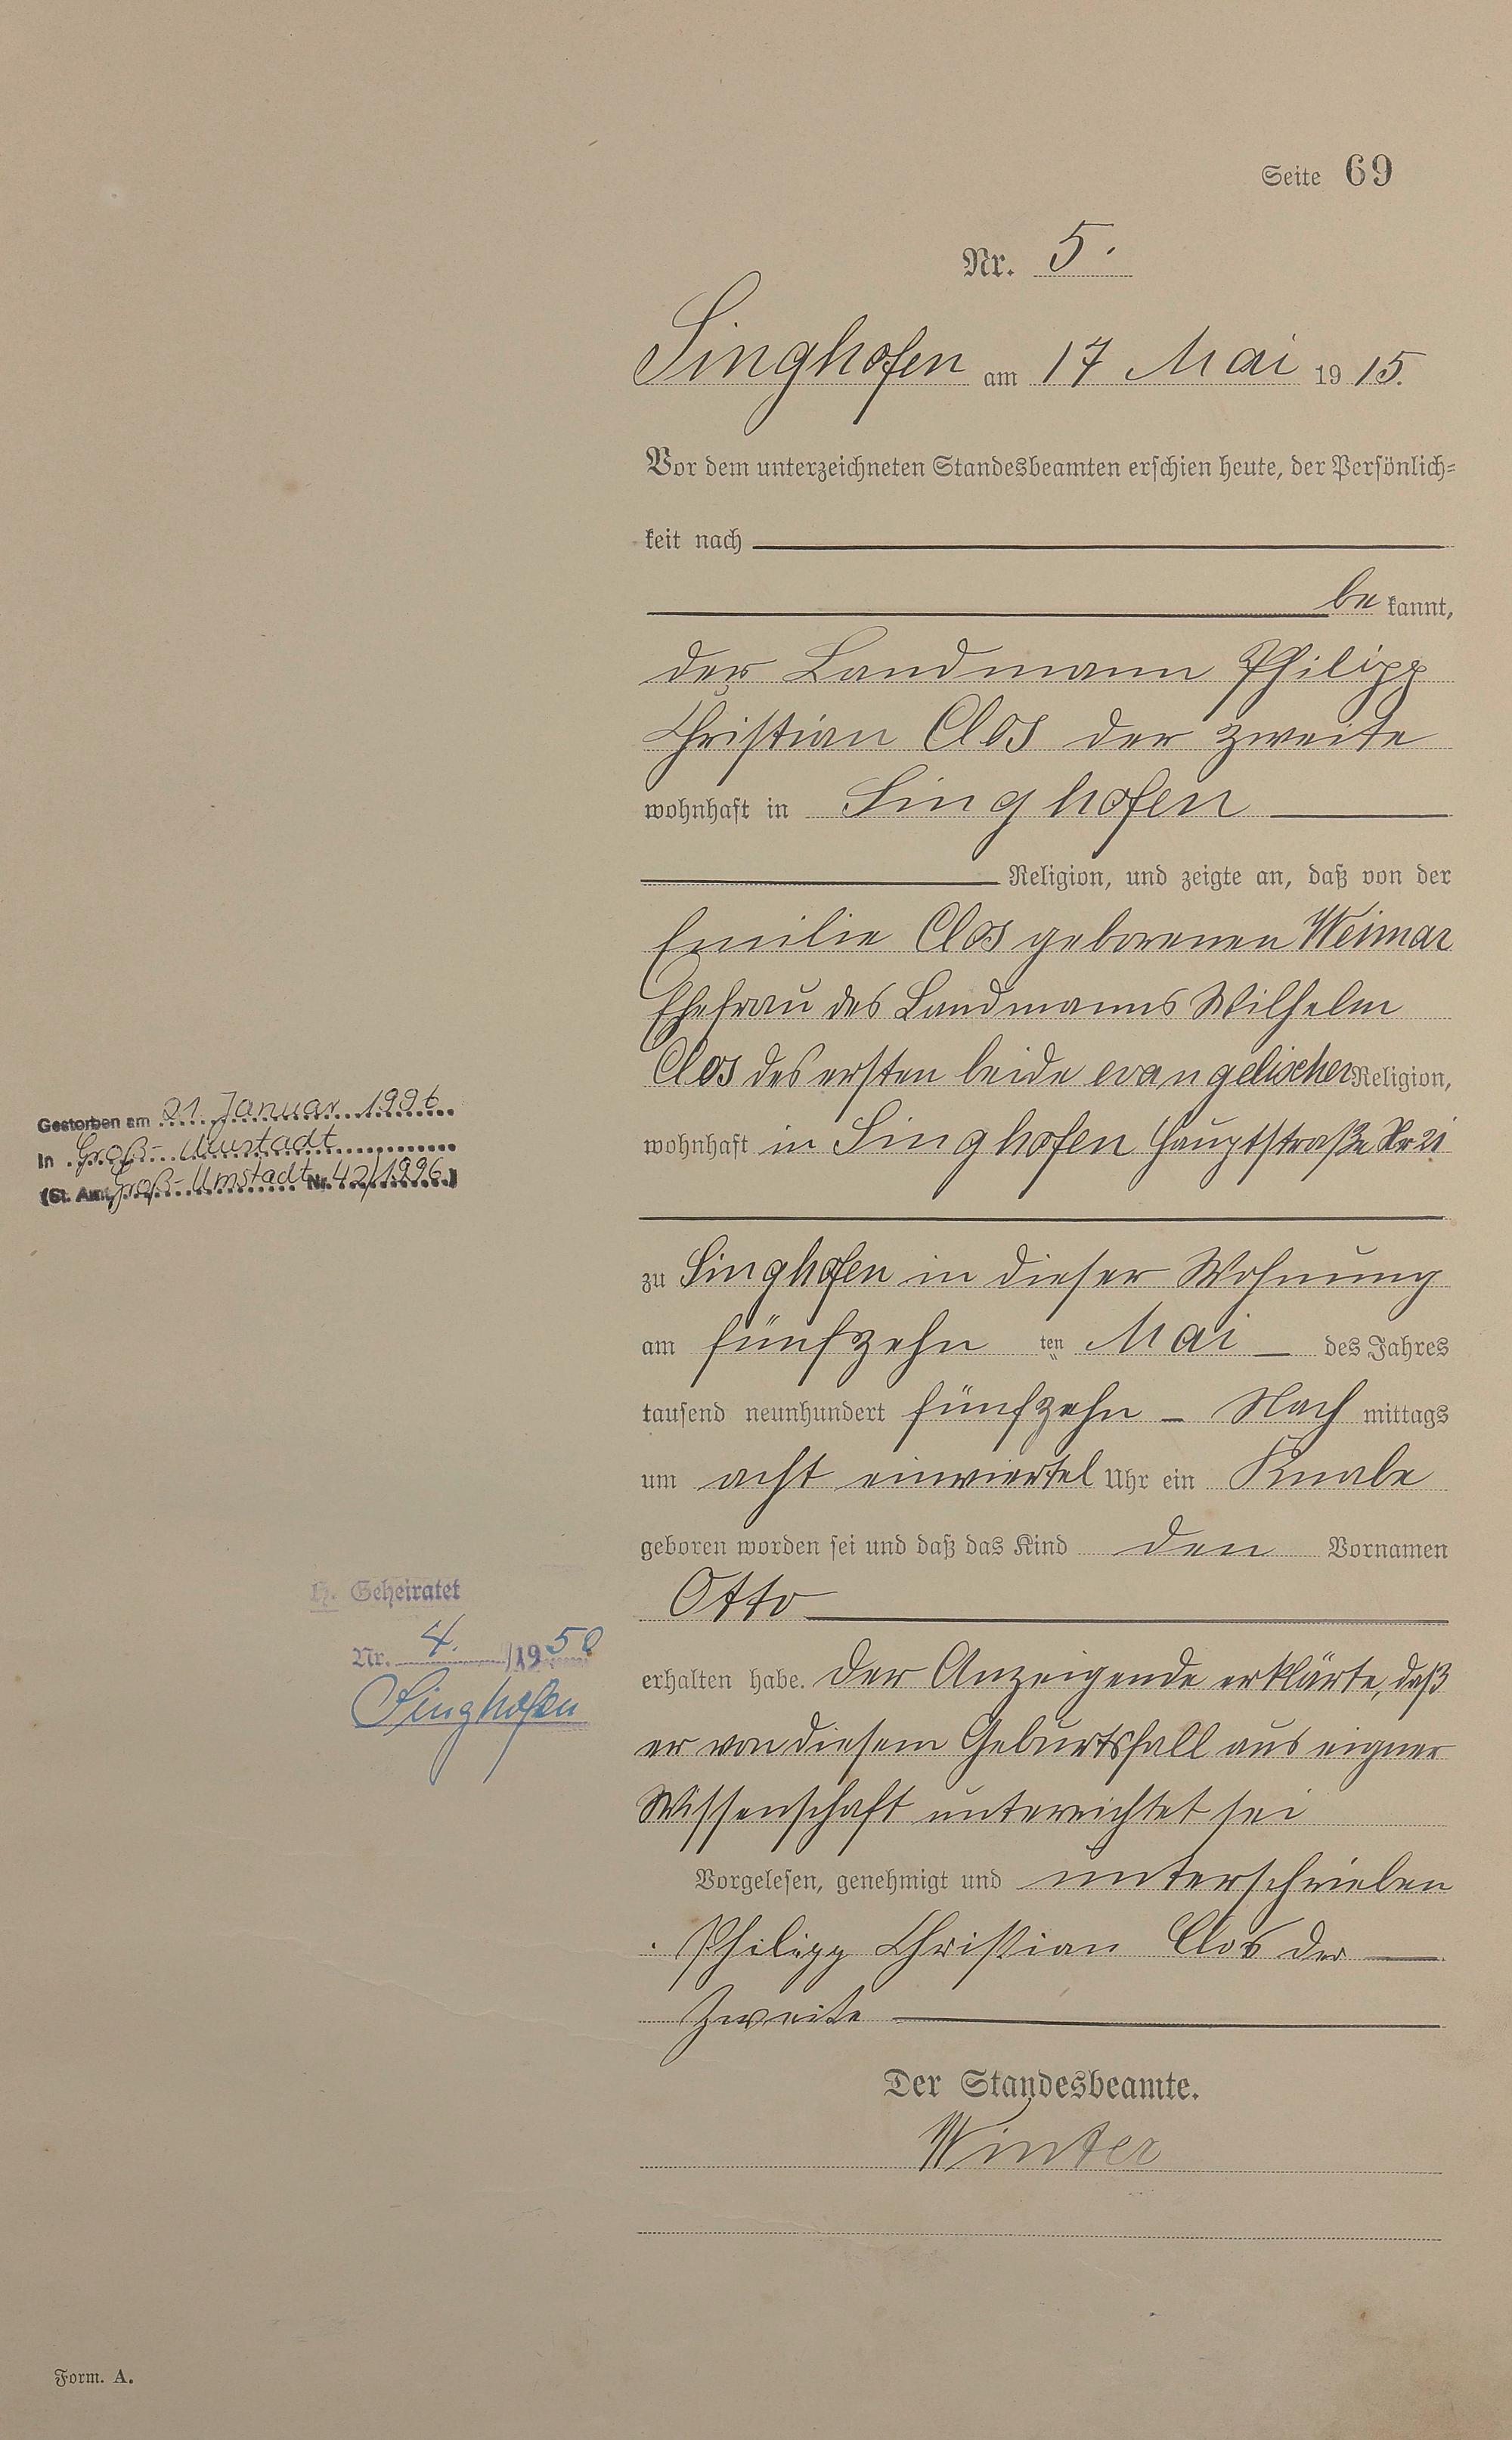 Seite 69
Nr. 5.
Singhofen am 17 Mai 1915.
Vor dem unterzeichneten Standesbeamten erschien heute, der Persönlich=
keit nach
be kannt,
der Landmann Philipp
Christian Clos der zweite
wohnhaft in Singhofen
Religion, und zeigte an, daß von der
Emilie Clos geborenen Weimar
Ehefrau des Landmanns Wilhelm
Clos des ersten beide evangelischer Religion,
wohnhaft in Singhofen Hauptstraße Nr 21
zu Singhofen in dieser Wohnung
am fünfzehn ten Mai des Jahres
tausend neunhundert fünfzehn Nach mittags
um acht einviertel Uhr ein Knabe
geboren worden sei und daß das Kind den Vornamen
Otto
erhalten habe. Der Anzeigende erklärte, daß
er von diesem Geburtsfall aus eigner
Wissenschaft unterrichtet sei
Vorgelesen, genehmigt und unterschrieben
Philipp Christian Clos der
Zweite
Der Standesbeamte.
Winter
Gestorben am 21. Januar 1996
in Groß-Umstadt
(St. Amt Groß-Umstadt Nr. 42/1996)
H. Geheiratet
Nr. 4. /1950
Singhofen
Form. A.